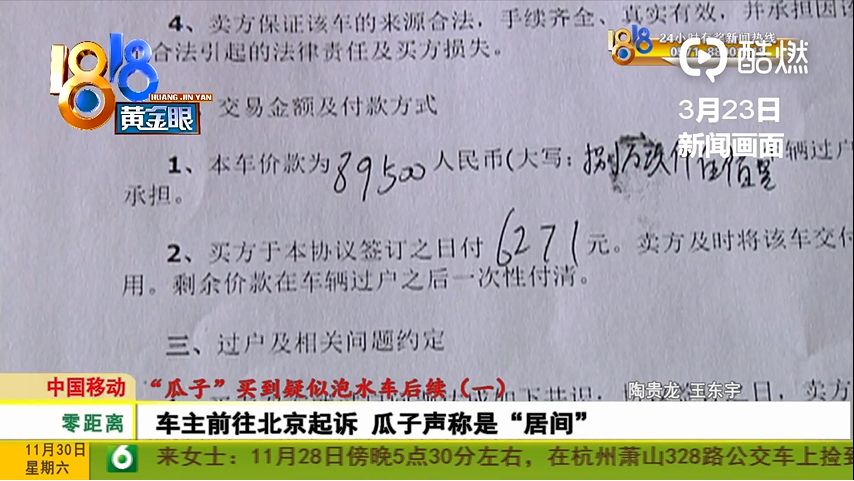 4、卖方保证该车的来源合法，手续齐全、真实有效，并承担因该
合法引起的法律责任及买方损失。
1818
HUANG JIN YAN
黄金眼
24小时有奖新闻热线
酷燃
3月23日
新闻画面
交易金额及付款方式
1、本车价款为89500人民币(大写：捌万玖仟伍佰
车辆过户
承担。
2、买方于本协议签订之日付6271元。卖方及时将该车交付
用。剩余价款在车辆过户之后一次性付清。
三、过户及相关问题约定
中国移动
“瓜子”买到疑似泡水车后续（一）
陶贵龙 王东宇
零距离
车主前往北京起诉 瓜子声称是“居间”
11月30日
星期六
6
来女士：11月28日傍晚5点30分左右，在杭州萧山328路公交车上捡到